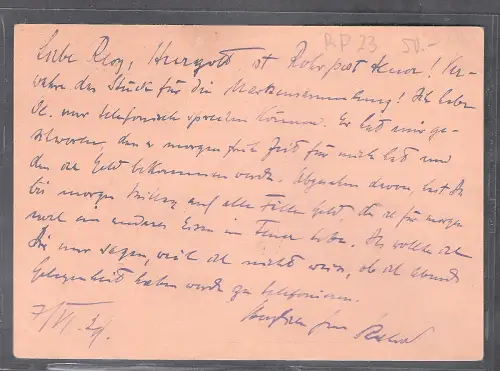 RP 23 50.-
Liebe Resy, ist Rohrpost teuer! Ver-
wahre das Stück für die Markensammlung! Ich habe
nur telefonisch sprechen können. Er hat mir ge-
schworen, dass er morgen früh Zeit für mich hat und
dass ich Geld bekommen werde. Abgesehen davon, hast Du
bis morgen Mittag auf alle Fälle Geld, da ich für morgen
noch ein anderes Eisen im Feuer habe. Ich wollte es
Dir nur sagen, weil ich nicht weiss, ob ich abends
Gelegenheit haben werde zu telefonieren.
Herzlichen Gruss
7/VI. 24.